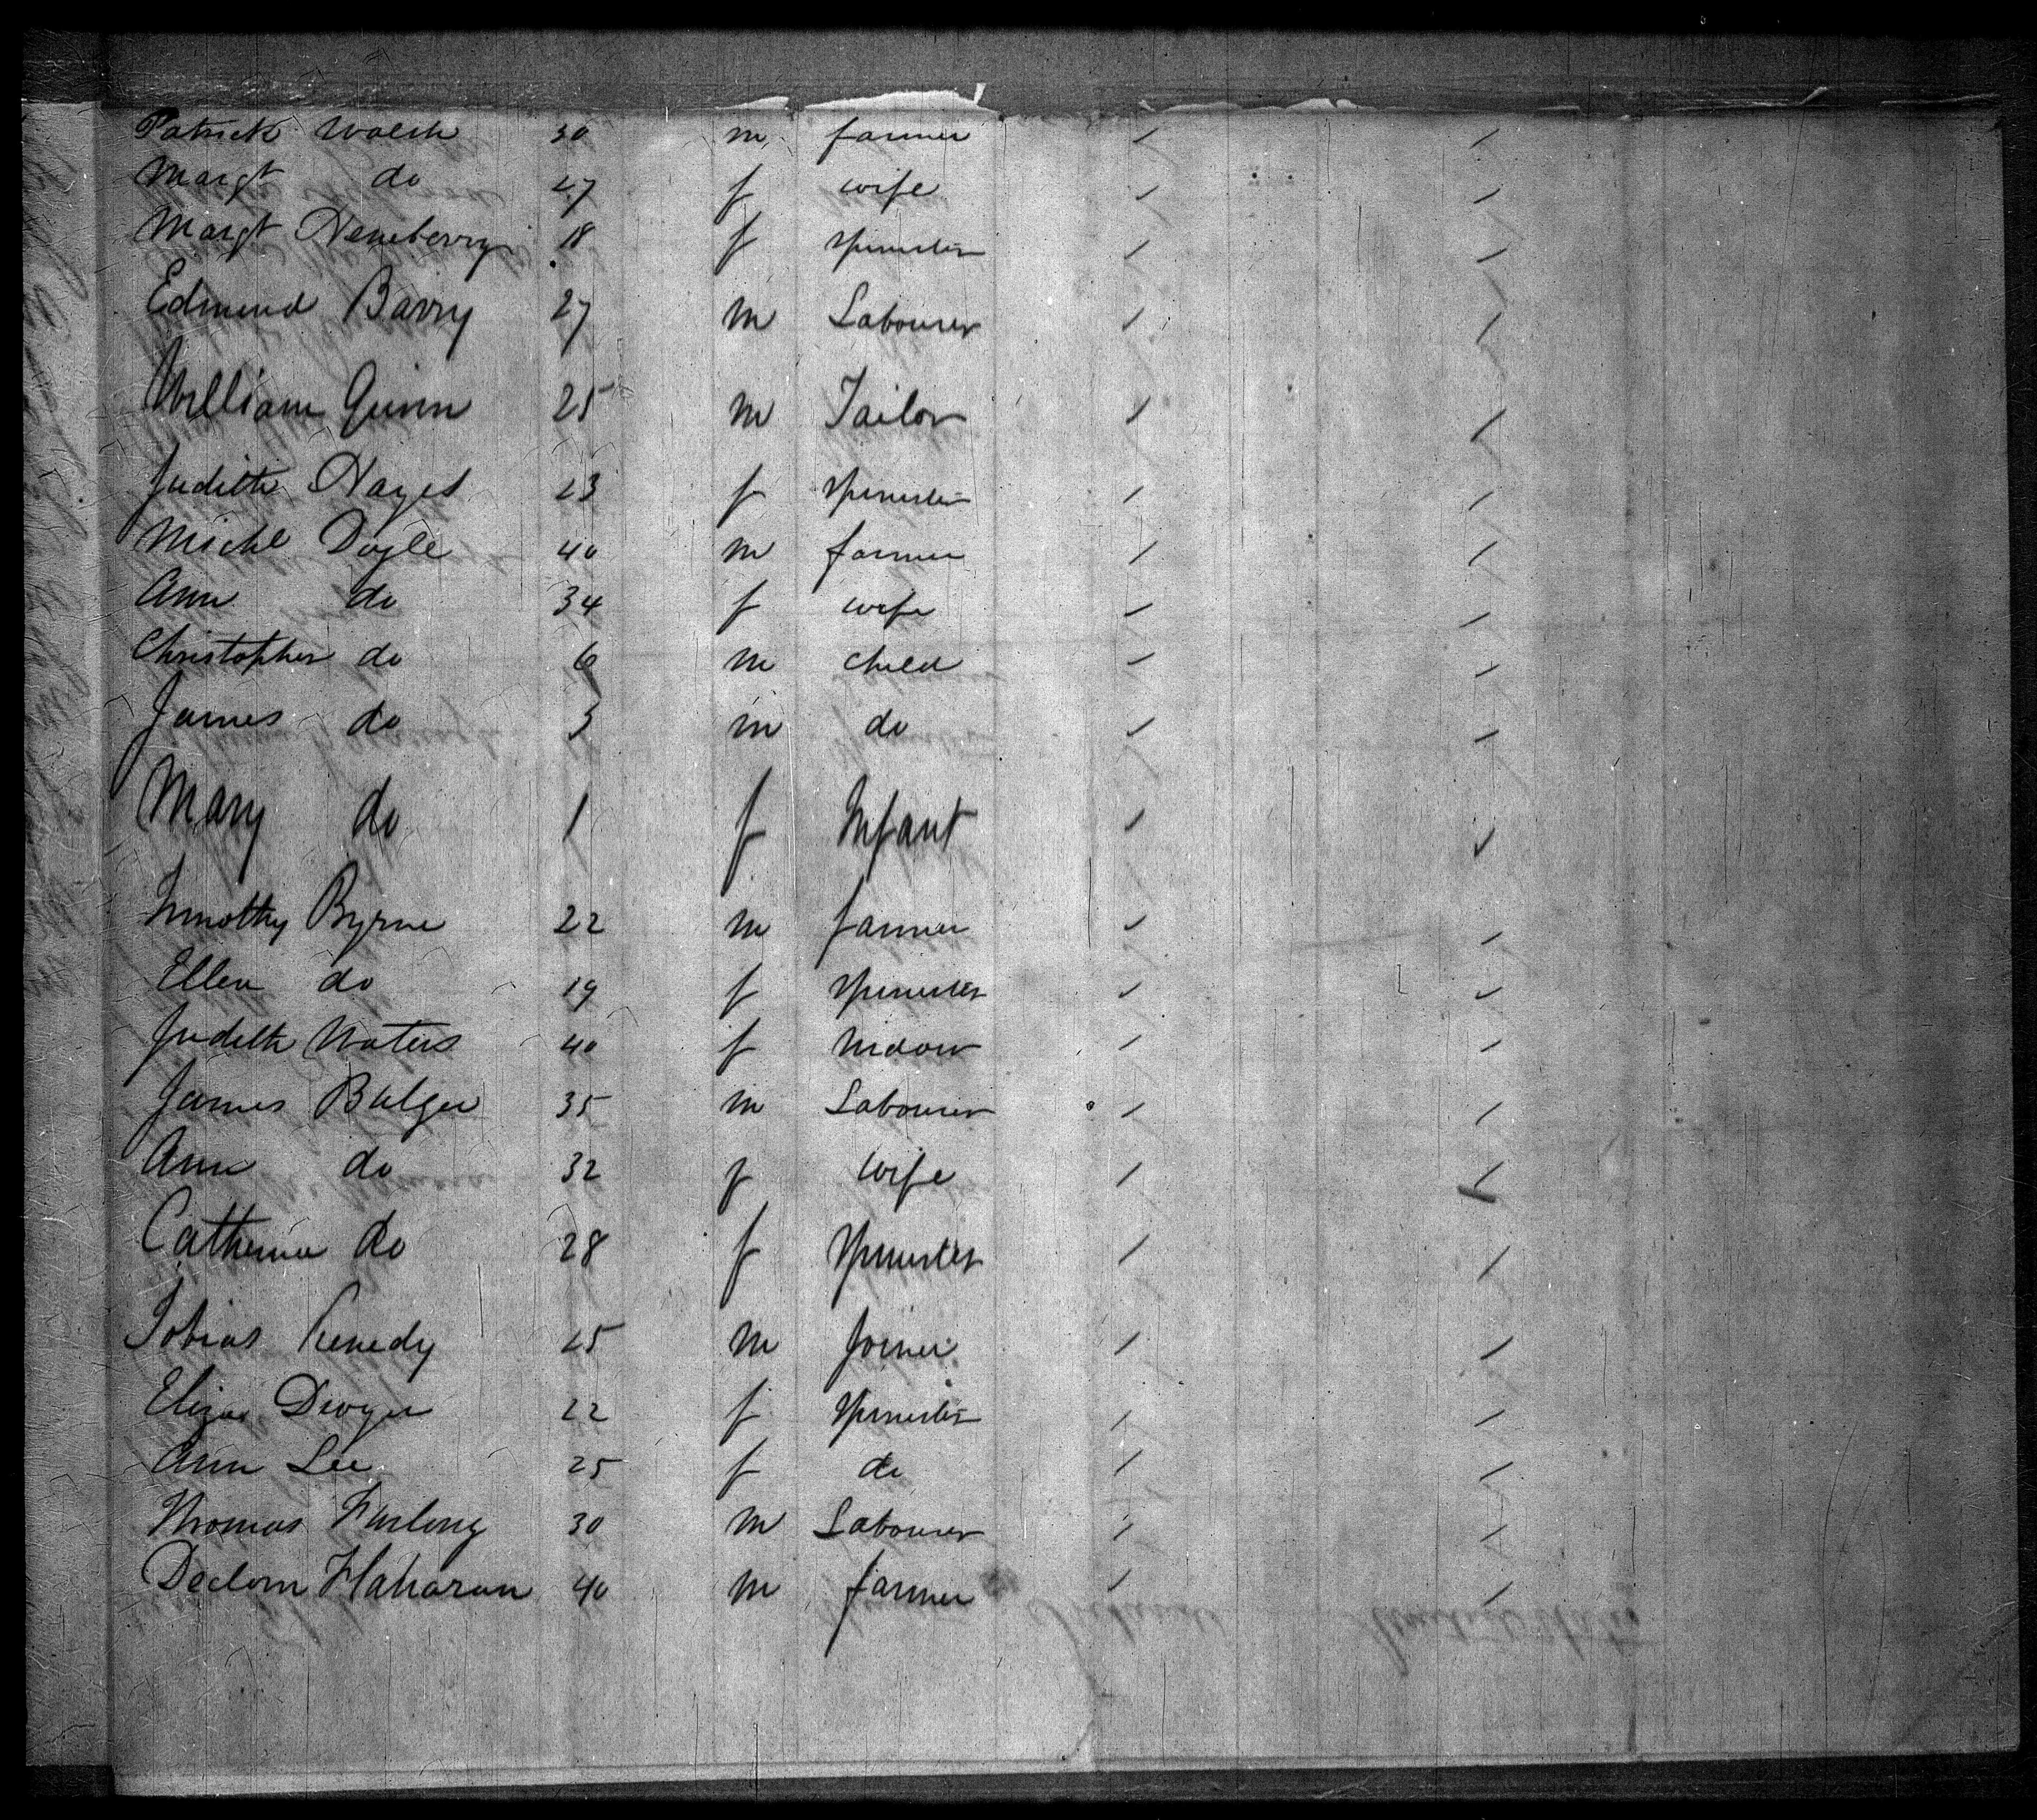 Patrick Walsh 30 m farmer / /
Margt do 27 f wife / /
Margt Heneberry 18 f spinster / /
Edmund Barry 27 m Labourer / /
William Quinn 25 m Tailor / /
Judith Hayes 23 f spinster / /
Michl Doyle 40 m farmer / /
Ann do 34 f wife / /
Christopher do 6 m child / /
James do 3 m do / /
Mary do 1 f Infant / /
Timothy Byrne 22 m farmer / /
Ellen do 19 f spinster / /
Judith Waters 40 f widow / /
James Bulger 35 m Labourer / /
Ann do 32 f wife / /
Catherine do 28 f spinster / /
Tobias Kenedy 25 m Joiner / /
Eliza Dwyer 22 f spinster / /
Ann Lee 25 f do / /
Thomas Furlong 30 m Labourer / /
Declom Haharan 40 m farmer / /